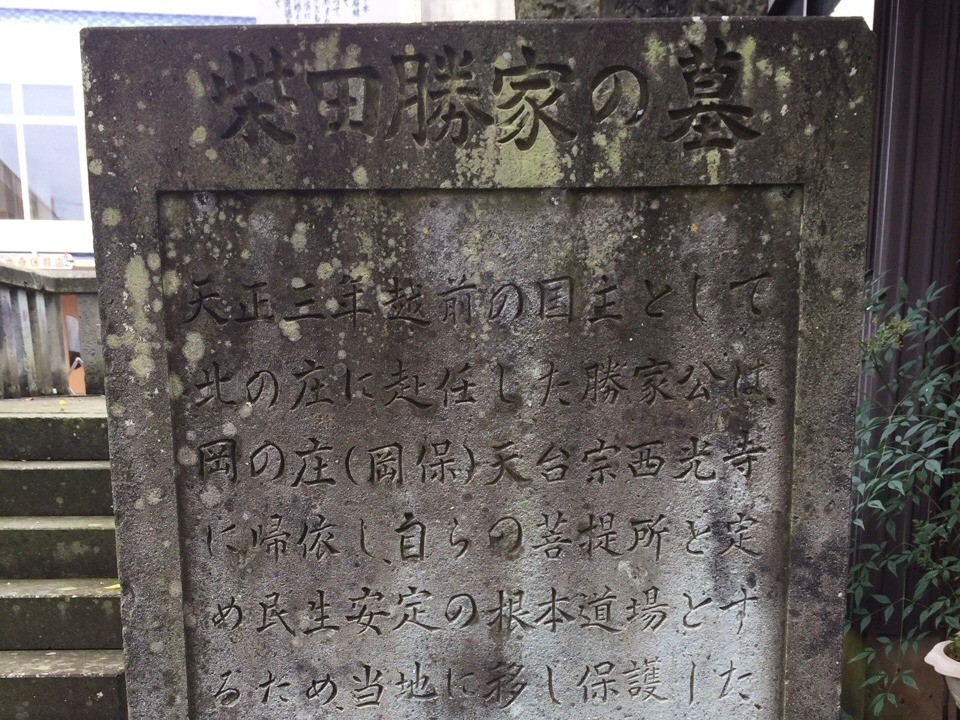 柴田勝家の墓
天正三年越前の国主として
北の庄に赴任した勝家公は、
岡の庄(岡保)天台宗西光寺
に帰依し、自らの菩提所と定
め民生安定の根本道場とす
るため、当地に移し保護した、